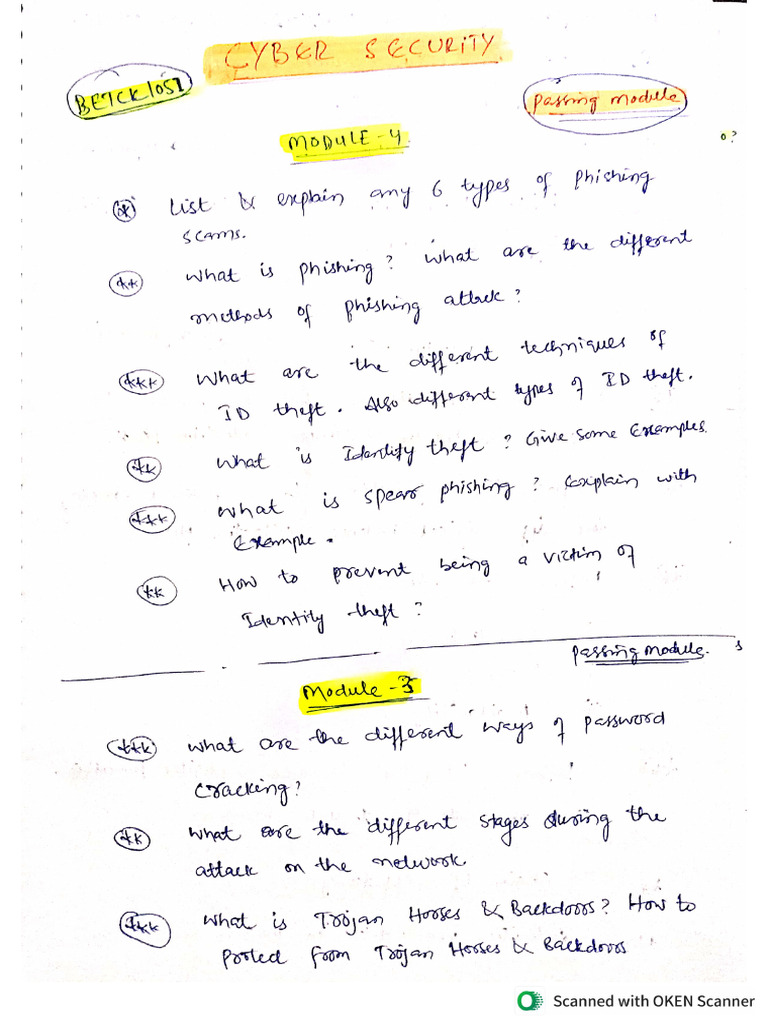 CYBER SECURITY
BETCK105I
Passing module
MODULE - 4
o?
* List & explain any 6 types of Phishing
scams.
** What is phishing? What are the different
methods of phishing attack?
*** What are the different techniques of
ID theft. Also different types of ID theft.
** What is Identify theft? Give some Examples.
*** What is spear phishing? Explain with
Example.
** How to prevent being a victim of
Identity theft?
Passing module.
Module - 3
*** What are the different ways of password
cracking?
** What are the different stages during the
attack on the network.
*** What is Trojan Horses & Backdoors? How to
protect from Trojan Horses & Backdoors
Scanned with OKEN Scanner